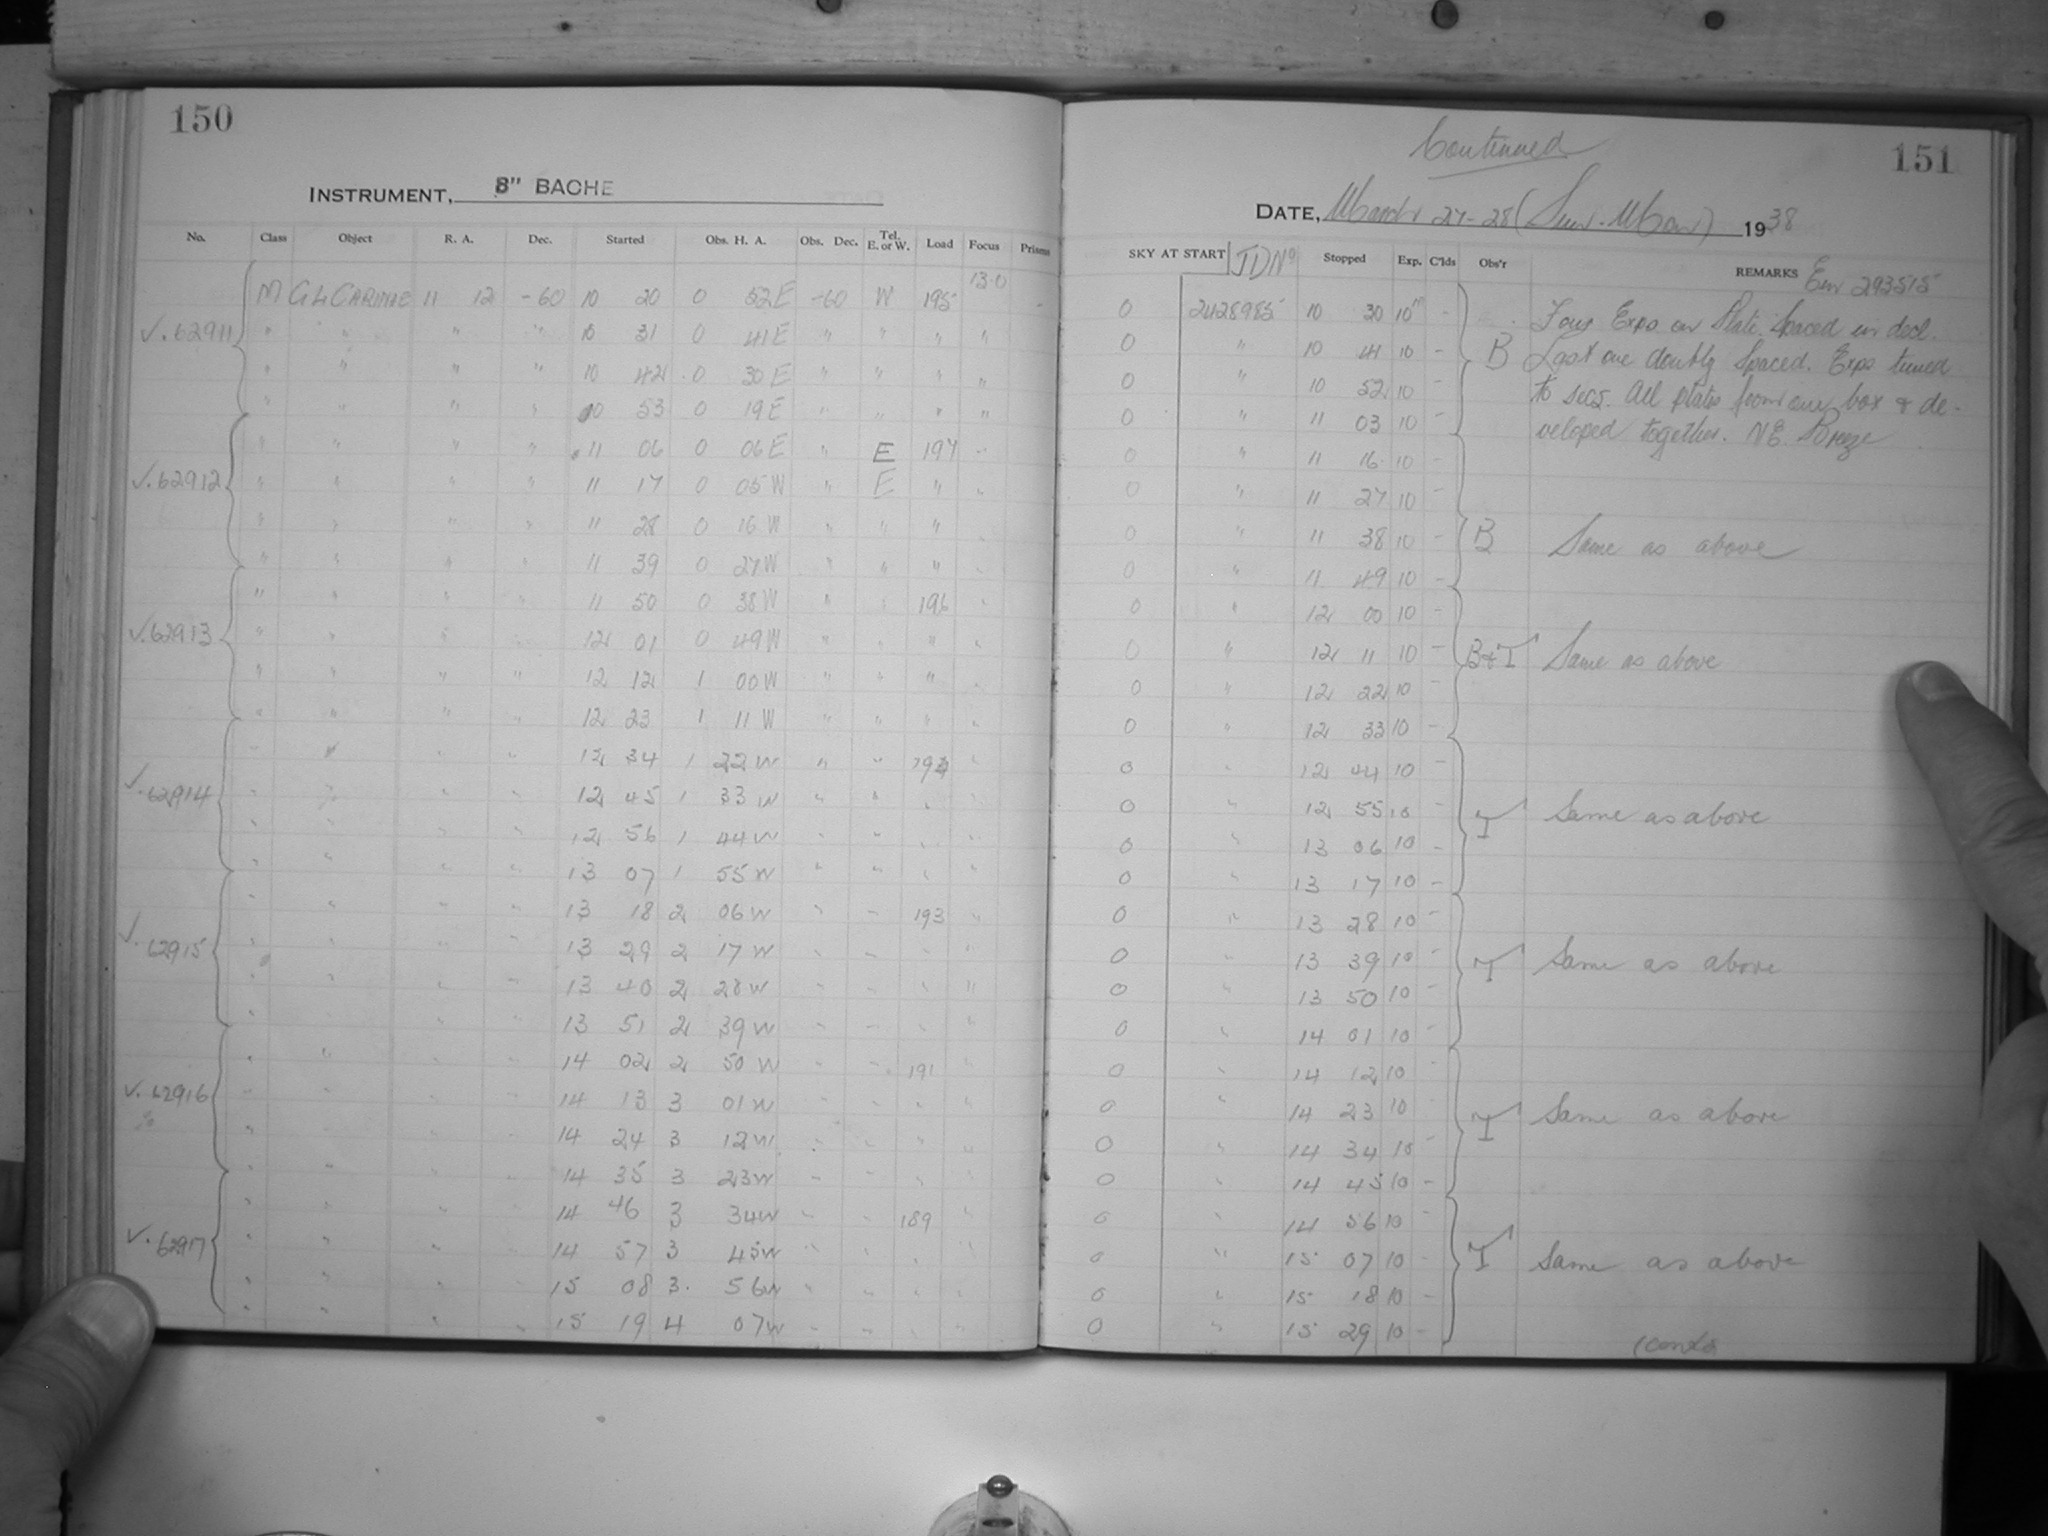 150
INSTRUMENT, 8" BACHE
No. Class Object R. A. Dec. Started Obs. H. A. Obs. Dec. Tel. E. or W. Load Focus Prisms
M GL CARINAE 11 12 -60 10 20 0 52E -60 W 195 13.0 -
✓. 62911 " " " " 10 31 0 41E " " " "
" " " " 10 42 0 30E " " " "
" " " " 10 53 0 19E " " " "
" " " " 11 06 0 06E " E 197 "
✓. 62912 " " " " 11 17 0 05W " E " "
" " " " 11 28 0 16W " " " "
" " " " 11 39 0 27W " " " "
" " " " 11 50 0 38W " " 196 "
✓. 62913 " " " " 12 01 0 49W " " " "
" " " " 12 12 1 00W " " " "
" " " " 12 23 1 11W " " " "
" " " " 12 34 1 22W " " "
✓. 62914 " " " " 12 45 1 33W " " " "
" " " " 12 56 1 44W " " " "
" " " " 13 07 1 55W " " " "
" " " " 13 18 2 06W " " 193 "
✓. 62915 " " " " 13 29 2 17W " " " "
" " " " 13 40 2 28W " " " "
" " " " 13 51 2 39W " " " "
" " " " 14 02 2 50W " " 191 "
✓. 62916 " " " " 14 13 3 01W " " " "
" " " " 14 24 3 12W " " " "
" " " " 14 35 3 23W " " " "
" " " " 14 46 3 34W " " 189 "
✓. 62917 " " " " 14 57 3 45W " " " "
" " " " 15 08 3 56W " " " "
" " " " 15 19 4 07W " " " "
Continued
151
DATE, March 27-28 (Sun.-Mon) 1938
SKY AT START JDNo Stopped Exp. C'lds Obs'r REMARKS Em 293515
0 2428985 10 30 10m - Four Exps on Plate. Spaced in decl.
0 " 10 41 10 - B Last one doubly spaced. Exps timed
0 " 10 52 10 - to secs. All plates from one box & de-
0 " 11 03 10 - veloped together. NE. Breeze
0 " 11 16 10 -
0 " 11 27 10 -
0 " 11 38 10 - B Same as above
0 " 11 49 10 -
0 " 12 00 10 -
0 " 12 11 10 - B&T Same as above
0 " 12 22 10 -
0 " 12 33 10 -
0 " 12 44 10 -
0 " 12 55 10 - T Same as above
0 " 13 06 10 -
0 " 13 17 10 -
0 " 13 28 10 -
0 " 13 39 10 - T Same as above
0 " 13 50 10 -
0 " 14 01 10 -
0 " 14 12 10 -
0 " 14 23 10 - T Same as above
0 " 14 34 10 -
0 " 14 45 10 -
0 " 14 56 10 -
0 " 15 07 10 - T Same as above
0 " 15 18 10 -
0 " 15 29 10 -
(contd